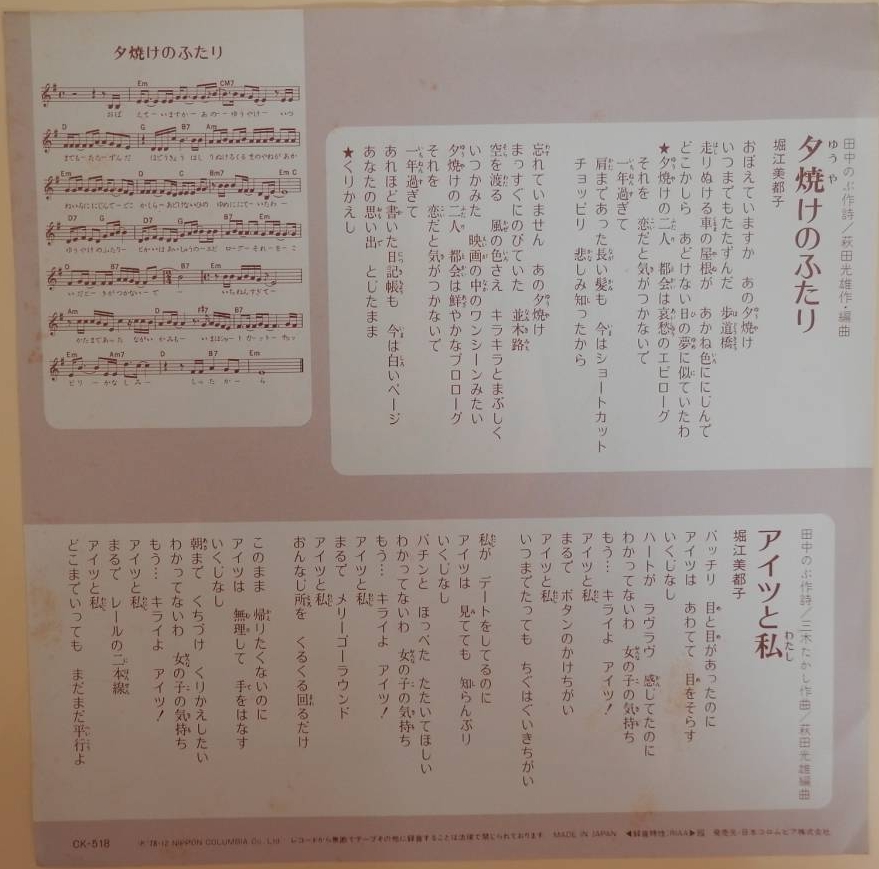 夕焼けのふたり
田中のぶ作詩/萩田光雄作・編曲
夕焼けのふたり
堀江美都子
おぼえていますか あの夕焼け
いつまでもたたずんだ 歩道橋
走りぬける車の屋根が あかね色ににじんで
どこかしら あどけない日の夢に似ていたわ
★夕焼けの二人 都会は哀愁のエピローグ
それを 恋だと気がつかないで
一年過ぎて
肩まであった長い髪も 今はショートカット
チョッピリ 悲しみ知ったから
忘れていません あの夕焼け
まっすぐにのびていた 並木路
空を渡る 風の色さえ キラキラとまぶしく
いつかみた 映画の中のワンシーンみたい
夕焼けの二人 都会は鮮やかなプロローグ
それを 恋だと気がつかないで
一年過ぎて
あれほど書いた日記帳も 今は白いページ
あなたの思い出 とじたまま
★くりかえし
田中のぶ作詩/三木たかし作曲/萩田光雄編曲
アイツと私
堀江美都子
バッチリ 目と目があったのに
アイツは あわてて 目をそらす
いくじなし
ハートが ラヴラヴ 感じてたのに
わかってないわ 女の子の気持ち
もう… キライよ アイツ!
アイツと私
まるで ボタンのかけちがい
アイツと私
いつまでたっても ちぐはぐいきちがい
私が デートをしてるのに
アイツは 見てても 知らんぷり
いくじなし
パチンと ほっぺた たたいてほしい
わかってないわ 女の子の気持ち
もう… キライよ アイツ!
アイツと私
まるで メリーゴーラウンド
アイツと私
おんなし所を くるくる回るだけ
このまま 帰りたくないのに
アイツは 無理して 手をはなす
いくじなし
朝まで くちづけ くりかえしたい
わかってないわ 女の子の気持ち
もう… キライよ アイツ!
アイツと私
まるで レールの二本線
アイツと私
どこまでいっても まだまだ平行よ
CK-518
℗'78・12 NIPPON COLUMBIA Co., Ltd. レコードから無断でテープその他に録音することは法律で禁じられております。 MADE IN JAPAN ◀録音特性:RIAA▶ 発売元・日本コロムビア株式会社